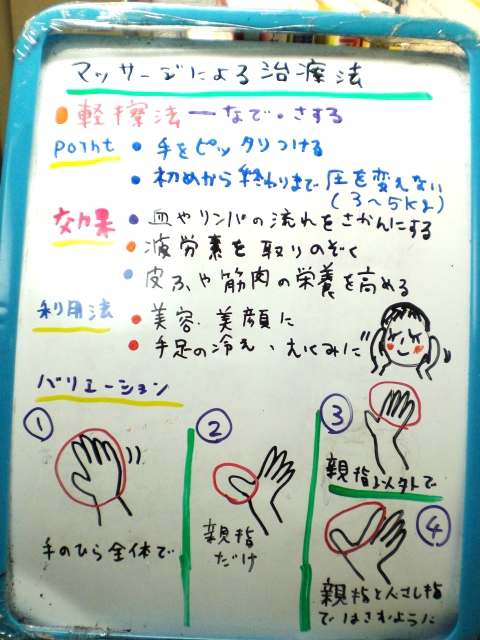 マッサージによる治療法
軽擦法ーなで・さする
Point
手をピッタリつける
初めから終わりまで圧を変えない
(3〜5kg)
効果
血やリンパの流れをさかんにする
疲労素を取りのぞく
皮ふや筋肉の栄養を高める
利用法
美容・美顔に
手足の冷え、むくみに
バリエーション
①
手のひら全体で
②
親指
だけ
③
親指以外で
④
親指と人さし指
ではさむように